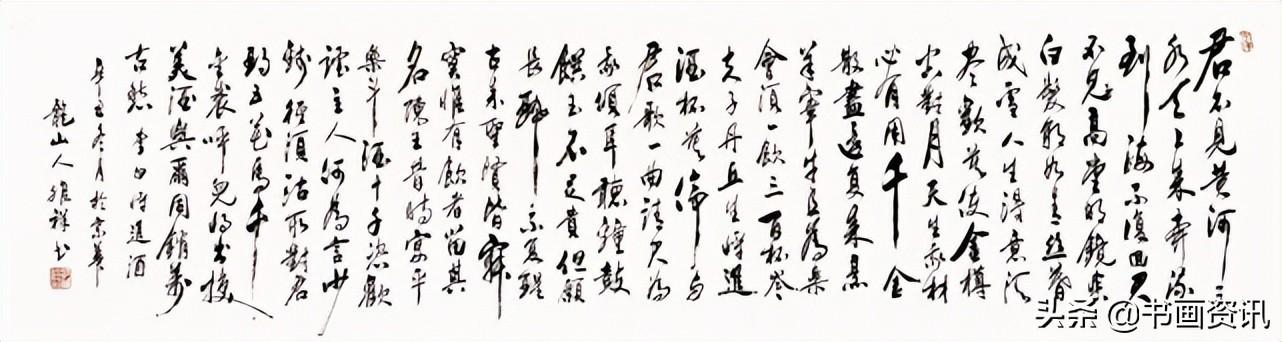 君不見黃河之
水天上來奔流
到海不復回君
不見高堂明鏡悲
白髮朝如青絲暮
成雪人生得意須
盡歡莫使金樽
空對月天生我材
必有用千金
散盡還復來烹
羊宰牛且為樂
會須一飲三百杯岑
夫子丹丘生將進
酒杯莫停與
君歌一曲請君為
我傾耳聽鐘鼓
饌玉不足貴但願
長醉不復醒
古來聖賢皆寂
寞惟有飲者留其
名陳王昔時宴平
樂斗酒十千恣歡
謔主人何為言少
錢徑須沽取對君
酌五花馬千
金裘呼兒將出換
美酒與爾同銷萬
古愁 李白將進酒
辛丑冬月於京華
龍山人 祥書
头条 @书画资讯